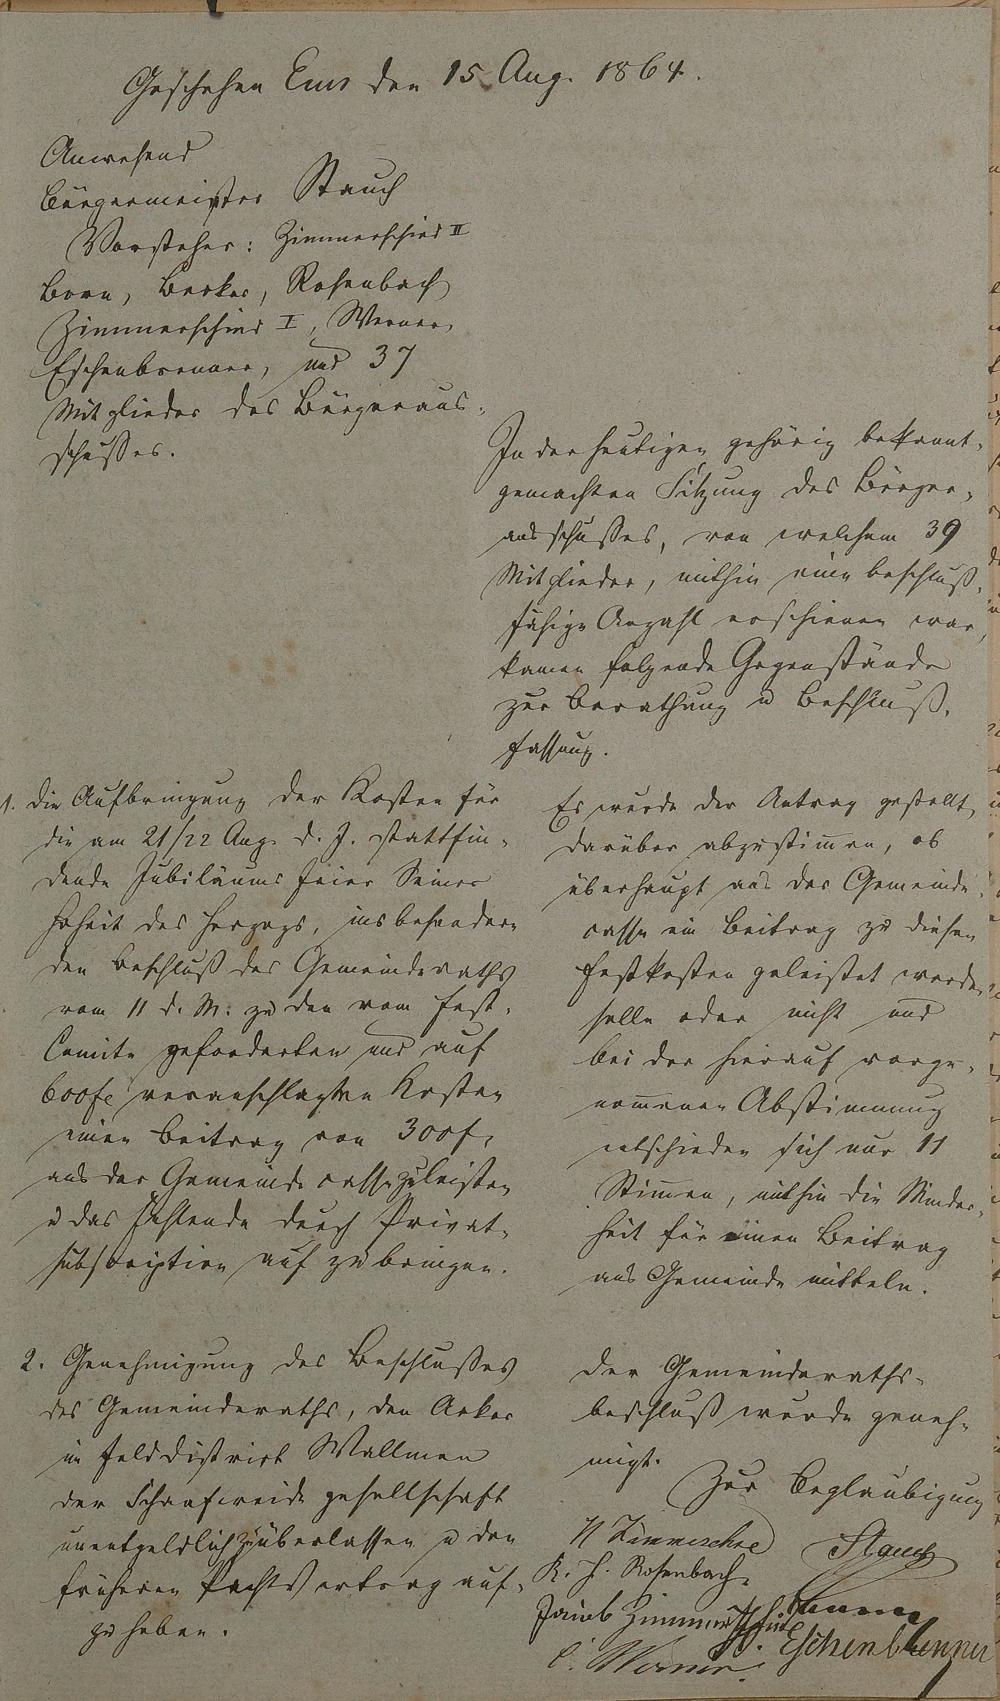 Geschehen Ems den 15. Aug. 1864.
Anwesend
Bürgermeister Stauch
Vorsteher: Zimmerschied II
Born, Becker, Rosenbach
Zimmerschied I, Werner,
Eschenbrenner, und 37
Mitglieder des Bürgeraus-
schusses.
In der heutigen gehörig bekannt-
gemachten Sitzung des Bürger-
ausschusses, von welchem 39
Mitglieder, mithin eine beschluß-
fähige Anzahl erschienen war,
kamen folgende Gegenstände
zur Berathung u Beschluß-
fassung.
1. Die Aufbringung der Kosten für
die am 21/22 Aug. d. J. stattfin-
dende Jubiläums feier Seiner
Hoheit des Herzogs, insbesondere
den Beschluß des Gemeinderaths
vom 11 d. M. zu den vom Fest-
Comite geforderten und auf
600 fl veranschlagten Kosten
einen Beitrag von 300 f.
aus der Gemeinde casse zu leisten
u das Fehlende durch Privat-
subscription auf zu bringen.
Es wurde der Antrag gestellt,
darüber abzustimen, ob
überhaupt aus der Gemeinde-
casse ein Beitrag zu diesen
Festkosten geleistet werden
solle oder nicht und
bei der hierauf vorge-
nomenen Abstimmung
entschieden sich nur 11
Stimen, mithin die Minder-
heit für einen Beitrag
aus Gemeinde mitteln.
2. Genehmigung des Beschlusses
des Gemeinderaths, den Acker
im Felddistrict Wallmen
der Schaafweide gesellschaft
unentgeldlich zu überlassen u den
früheren Pachtvertrag auf-
zu heben.
Der Gemeinderaths-
beschluß wurde geneh-
migt.
Zur Beglaubigung
Stauch
K. H. Rosenbach
Jacob Zimmerschied
Eschenbrenner
C. Werner.